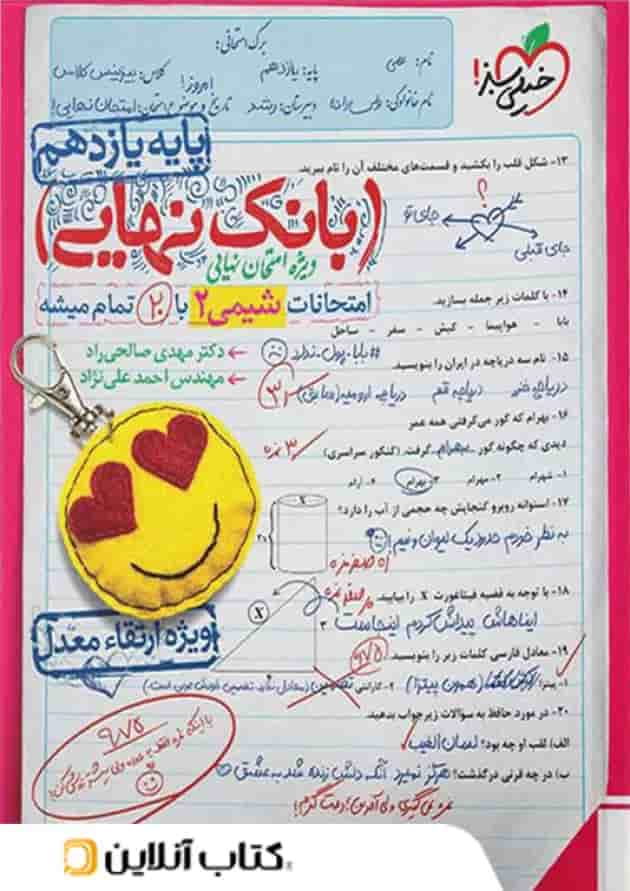 برگ امتحانی:
نام:
پایه: یازدهم
کلاس: بیزینس کلاس
نام خانوادگی:
دبیرستان:
تاریخ و موضوع امتحان: امروز! امتحان نهایی!
خیلی سبز!
پایه یازدهم
۱۳- شکل قلب را بکشید و قسمت‌های مختلف آن را نام ببرید.
؟
جای تو
جای قبلی
(بانک نهایی)
ویژه امتحان نهایی
امتحانات شیمی ۲ با ۲۰ تمام میشه
دکتر مهدی صالحی‌راد
مهندس احمد علی‌نژاد
۱۴- با کلمات زیر جمله بسازید.
بابا - هواپیما - کیش - سفر - ساحل
#بابا_پول_ندارد
۱۵- نام سه دریاچه در ایران را بنویسید.
دریاچه خزر دریاچه قم دریاچه ارومیه (سابق)
۱۶- بهرام که گور می‌گرفتی همه عمر
دیدی که چگونه گور بهرام گرفت. (کنکور سراسری)
۱- شهرام ۲- مهرام ۳- بهرام ۴- آرام
۱۷- استوانه روبرو گنجایش چه حجمی از آب را دارد؟
به نظر خودم حدود یک لیوان و نیم!
۱۸- با توجه به قضیه فیثاغورث X را بیابید.
X
۳
ایناهاش پیداش کردم اینجاست
۱۹- معادل فارسی کلمات زیر را بنویسید.
۱- پیتزا:
(همون پیتزا)
۲- گارانتی:
۲۰- در مورد حافظ به سؤالات زیر جواب بدهید.
الف) لقب او چه بود؟ لسان الغیب
ب) در چه قرنی درگذشت؟ هرگز نمیرد آنکه دلش زنده شد به عشق
ویژه ارتقاء معدل
۹/۷۵
کتاب آنلاین